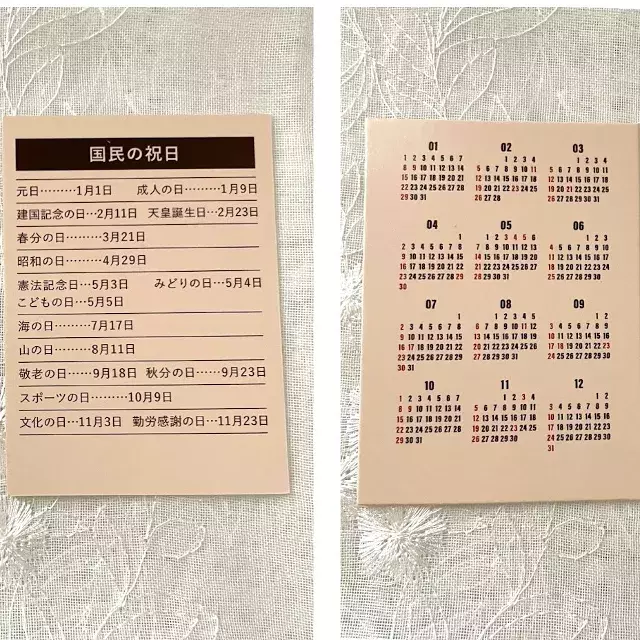 国民の祝日
元日………1月1日 成人の日………1月9日
建国記念の日…2月11日 天皇誕生日…2月23日
春分の日………3月21日
昭和の日………4月29日
憲法記念日…5月3日 みどりの日…5月4日
こどもの日…5月5日
海の日………7月17日
山の日………8月11日
敬老の日……9月18日 秋分の日……9月23日
スポーツの日………10月9日
文化の日…11月3日 勤労感謝の日…11月23日
01 02 03
1 2 3 4 5 6 7 1 2 3 4 1 2 3 4
8 9 10 11 12 13 14 5 6 7 8 9 10 11 5 6 7 8 9 10 11
15 16 17 18 19 20 21 12 13 14 15 16 17 18 12 13 14 15 16 17 18
22 23 24 25 26 27 28 19 20 21 22 23 24 25 19 20 21 22 23 24 25
29 30 31 26 27 28 26 27 28 29 30 31
04 05 06
1 1 2 3 4 5 6 1 2 3
2 3 4 5 6 7 8 7 8 9 10 11 12 13 4 5 6 7 8 9 10
9 10 11 12 13 14 15 14 15 16 17 18 19 20 11 12 13 14 15 16 17
16 17 18 19 20 21 22 21 22 23 24 25 26 27 18 19 20 21 22 23 24
23 24 25 26 27 28 29 28 29 30 31 25 26 27 28 29 30
30
07 08 09
1 1 2 3 4 5 1 2
2 3 4 5 6 7 8 6 7 8 9 10 11 12 3 4 5 6 7 8 9
9 10 11 12 13 14 15 13 14 15 16 17 18 19 10 11 12 13 14 15 16
16 17 18 19 20 21 22 20 21 22 23 24 25 26 17 18 19 20 21 22 23
23 24 25 26 27 28 29 27 28 29 30 31 24 25 26 27 28 29 30
30 31
10 11 12
1 2 3 4 5 6 7 1 2 3 4 1 2
8 9 10 11 12 13 14 5 6 7 8 9 10 11 3 4 5 6 7 8 9
15 16 17 18 19 20 21 12 13 14 15 16 17 18 10 11 12 13 14 15 16
22 23 24 25 26 27 28 19 20 21 22 23 24 25 17 18 19 20 21 22 23
29 30 31 26 27 28 29 30 24 25 26 27 28 29 30
31